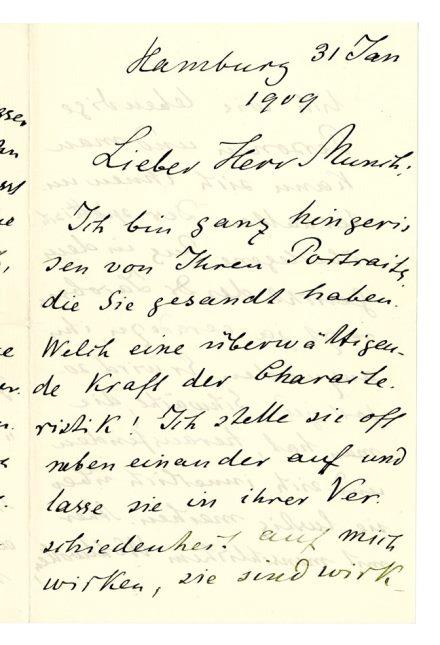 Hamburg 31 Jan
1909
Lieber Herr Munch:
Ich bin ganz hingeris
sen von Ihren Portraits,
die Sie gesandt haben.
Welch eine überwältigen-
de Kraft der Charakte.
ristik! Ich stelle sie oft
neben einander auf und
lasse sie in ihrer Ver.
schiedenheit auf mich
wirken, sie sind wirk-